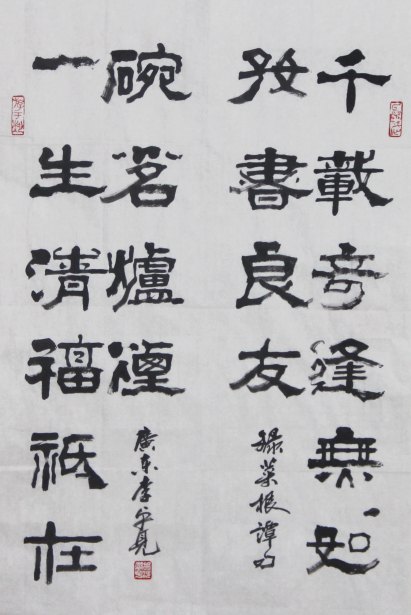 千載奇逢無如
好書良友
錄菜根譚句
一生清福祇在
碗茗爐煙
廣東李